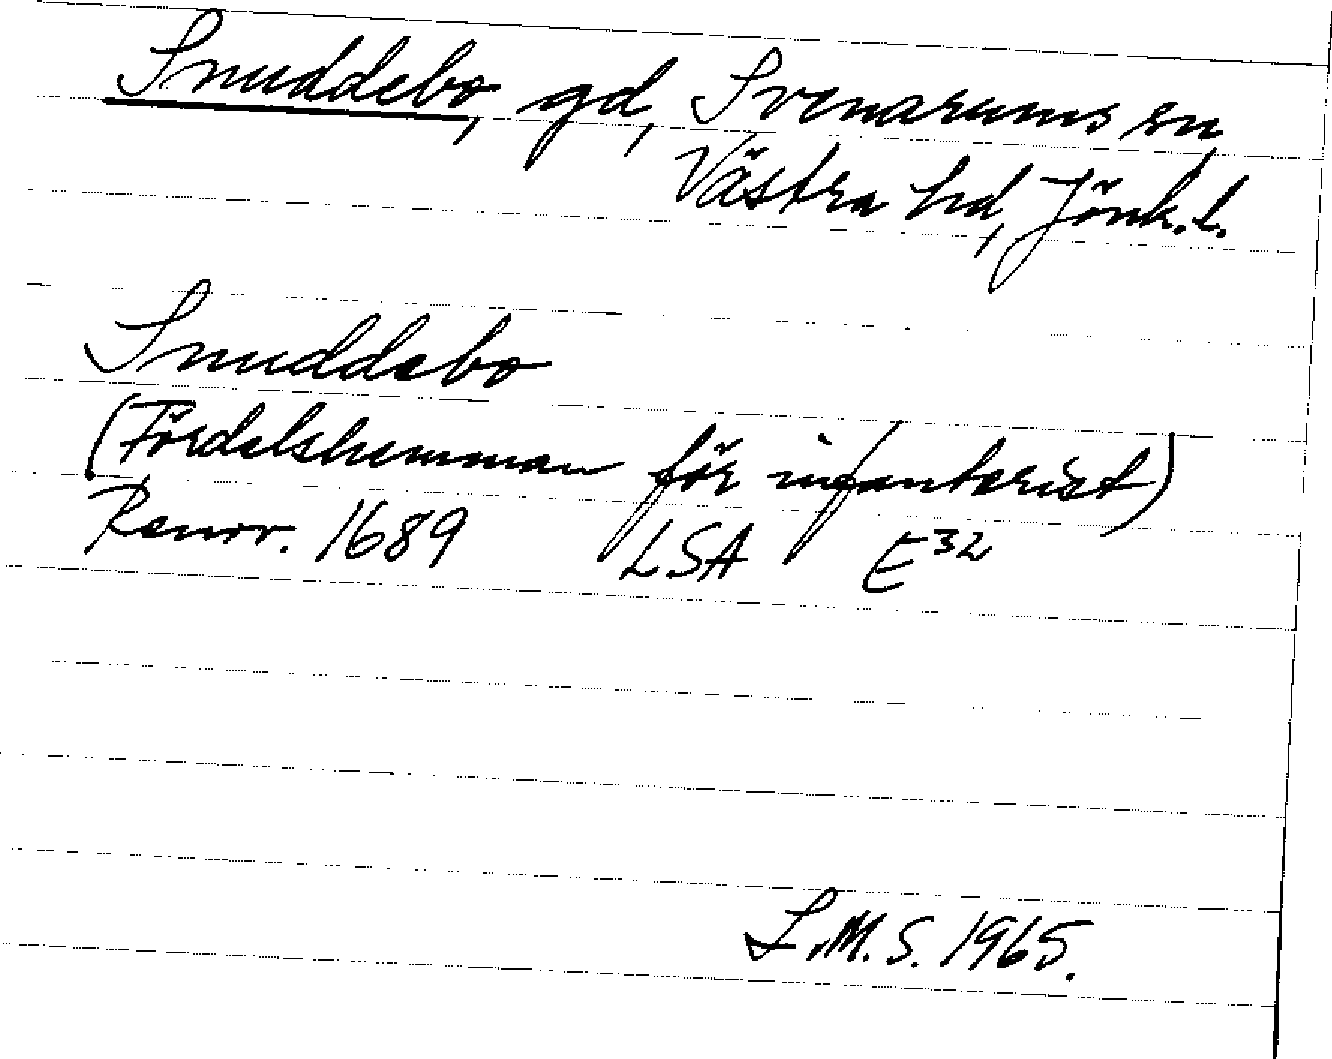 Snuddebo, gd, Svenarums sn,
Västra hd, Jönk.l.
Snuddebo
(Fördelshemman för infanterist)
Renov. 1689 LSA E32
L.M.S. 1965.